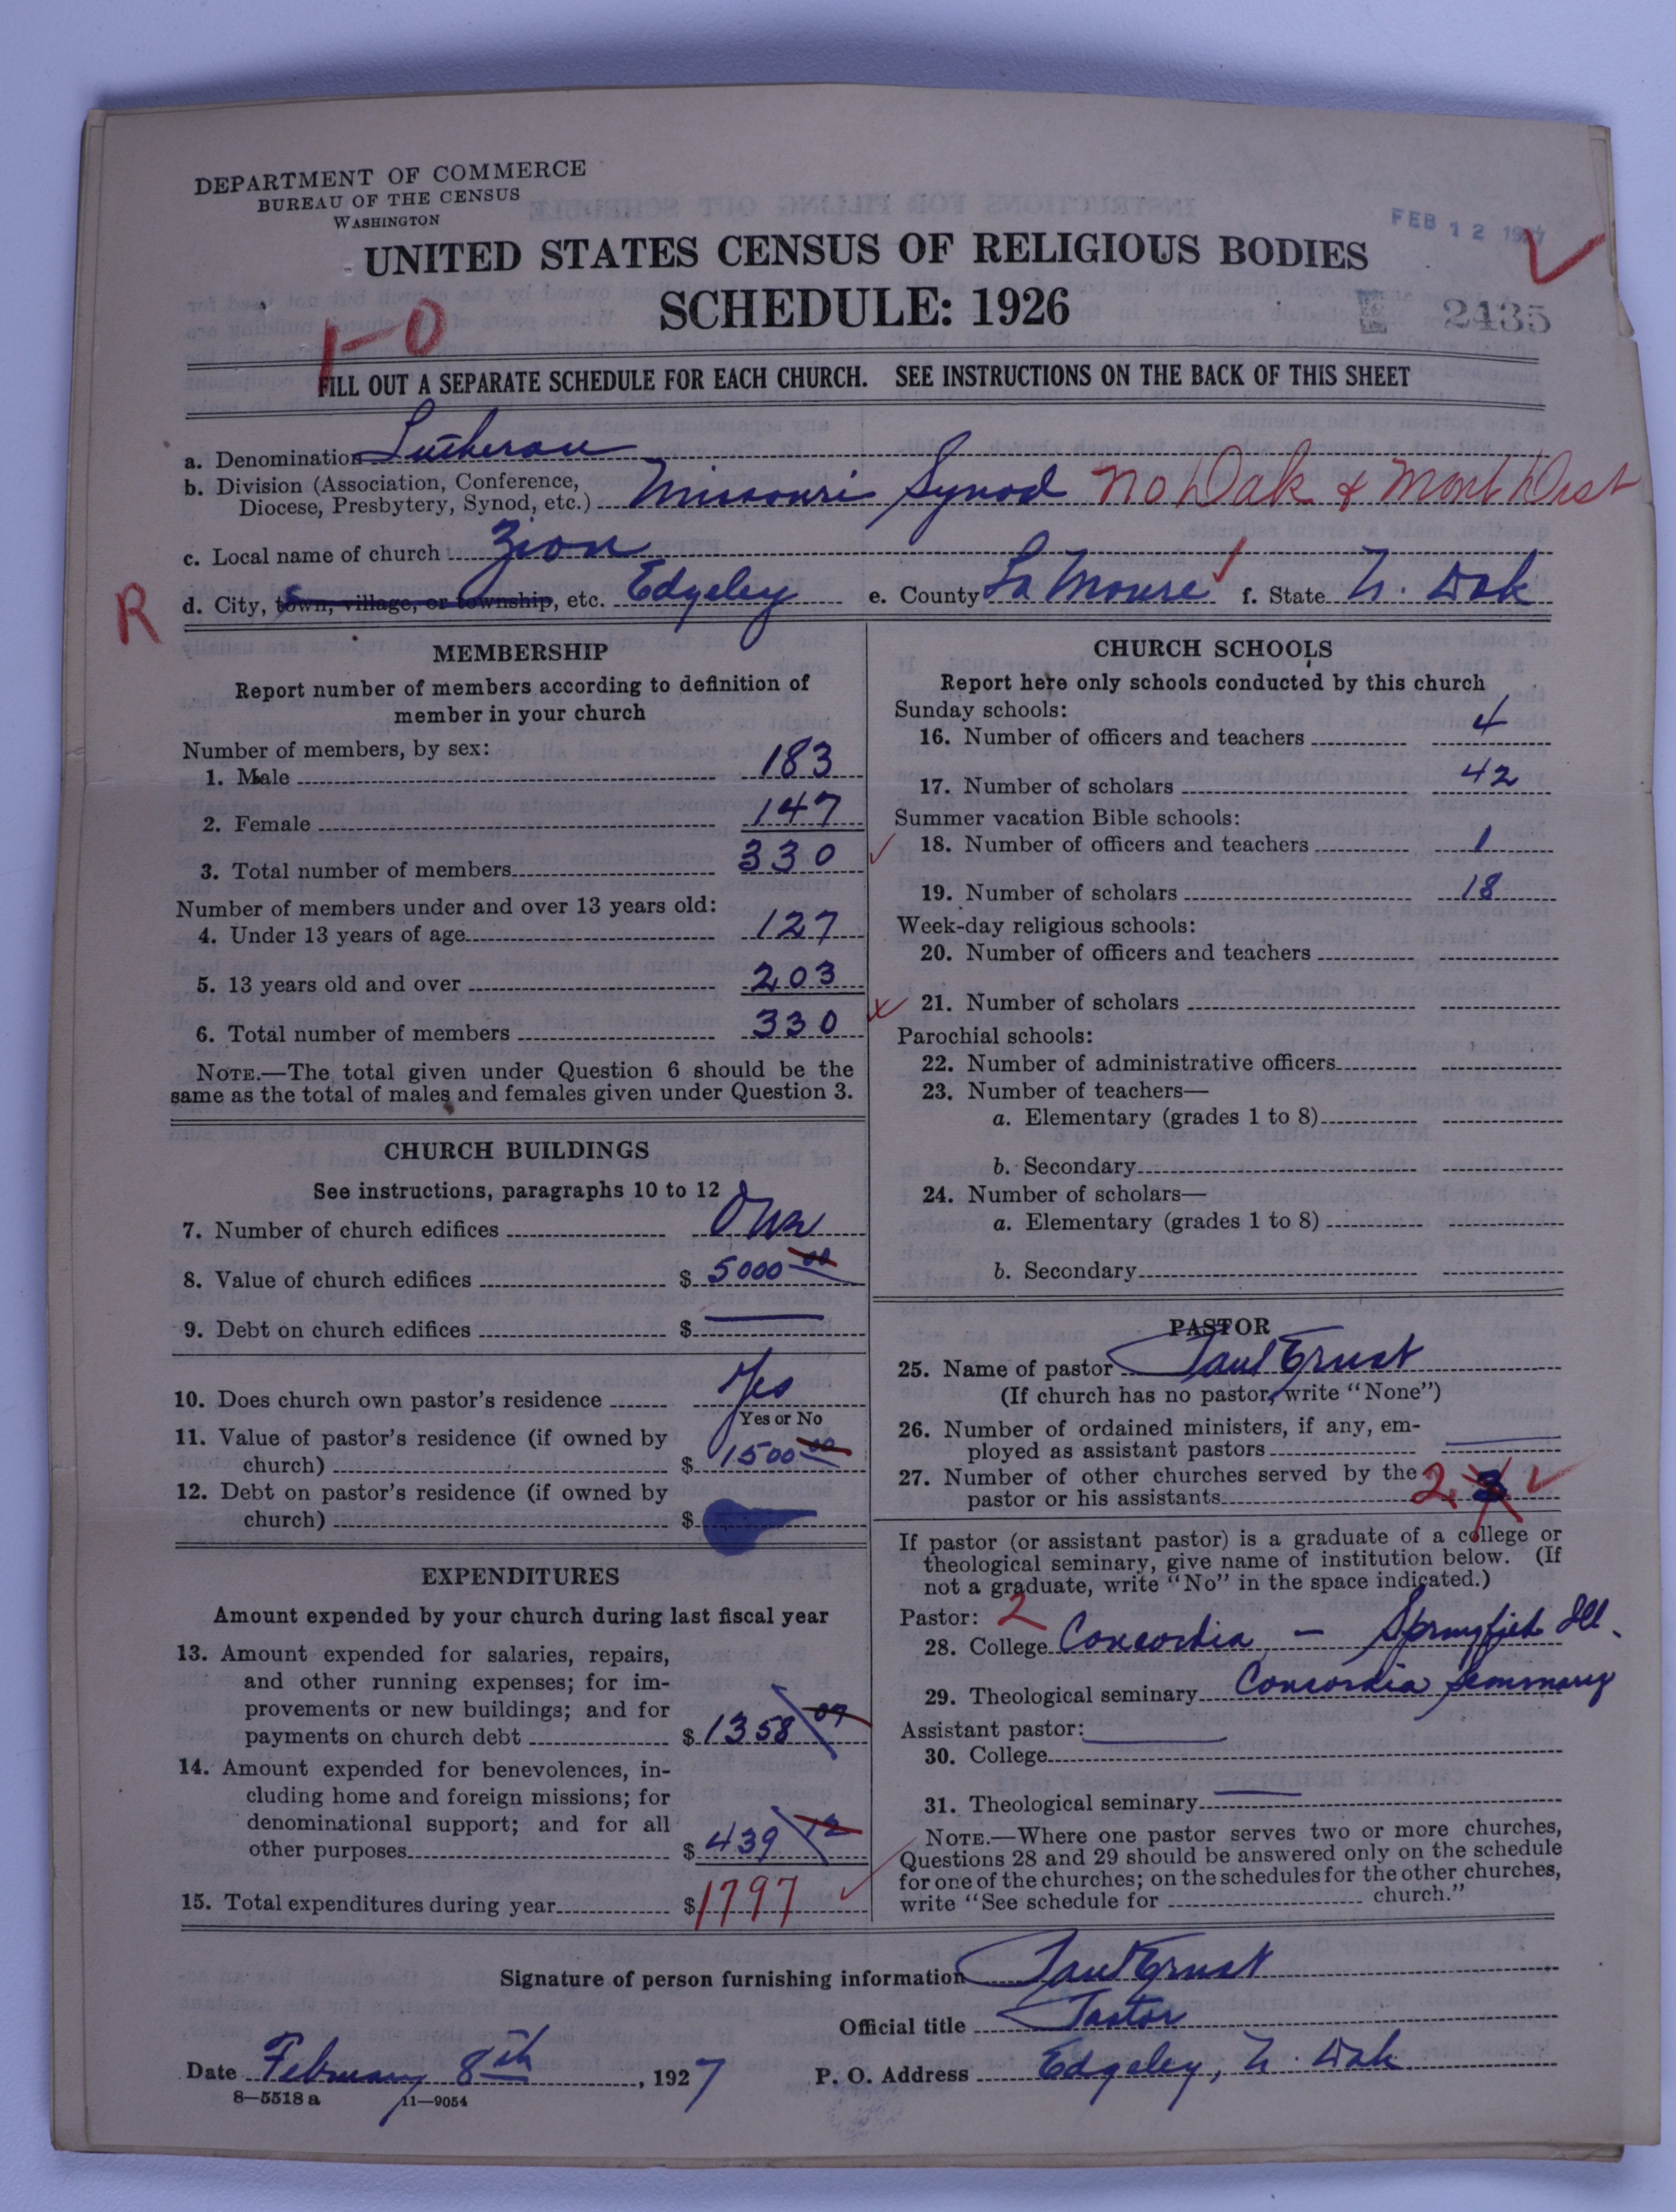 DEPARTMENT OF COMMERCE
BUREAU OF THE CENSUS
WASHINGTON
FEB 12 1927
UNITED STATES CENSUS OF RELIGIOUS BODIES
SCHEDULE: 1926
2435
1-0
FILL OUT A SEPARATE SCHEDULE FOR EACH CHURCH. SEE INSTRUCTIONS ON THE BACK OF THIS SHEET
a. Denomination Lutheran
b. Division (Association, Conference,
Diocese, Presbytery, Synod, etc.) Missouri Synod No Dak & Mont Dist
c. Local name of church Zion
R
d. City, town, village, or township, etc. Edgeley e. County La Moure f. State N. Dak
MEMBERSHIP
Report number of members according to definition of
member in your church
Number of members, by sex:
1. Male 183
2. Female 147
3. Total number of members 330
Number of members under and over 13 years old:
4. Under 13 years of age 127
5. 13 years old and over 203
6. Total number of members 330
NOTE.—The total given under Question 6 should be the
same as the total of males and females given under Question 3.
CHURCH BUILDINGS
See instructions, paragraphs 10 to 12
7. Number of church edifices One
8. Value of church edifices $ 5000 00
9. Debt on church edifices $
10. Does church own pastor's residence Yes
Yes or No
11. Value of pastor's residence (if owned by
church) $ 1500 00
12. Debt on pastor's residence (if owned by
church) $
EXPENDITURES
Amount expended by your church during last fiscal year
13. Amount expended for salaries, repairs,
and other running expenses; for im-
provements or new buildings; and for
payments on church debt $ 1358 07
14. Amount expended for benevolences, in-
cluding home and foreign missions; for
denominational support; and for all
other purposes $ 439 12
15. Total expenditures during year $ 1797
CHURCH SCHOOLS
Report here only schools conducted by this church
Sunday schools:
16. Number of officers and teachers 4
17. Number of scholars 42
Summer vacation Bible schools:
18. Number of officers and teachers 1
19. Number of scholars 18
Week-day religious schools:
20. Number of officers and teachers
21. Number of scholars
Parochial schools:
22. Number of administrative officers
23. Number of teachers—
a. Elementary (grades 1 to 8)
b. Secondary
24. Number of scholars—
a. Elementary (grades 1 to 8)
b. Secondary
PASTOR
25. Name of pastor Paul Ernst
(If church has no pastor, write "None")
26. Number of ordained ministers, if any, em-
ployed as assistant pastors
27. Number of other churches served by the
pastor or his assistants 2 3
If pastor (or assistant pastor) is a graduate of a college or
theological seminary, give name of institution below. (If
not a graduate, write "No" in the space indicated.)
Pastor: 2
28. College Concordia — Springfield Ill.
29. Theological seminary Concordia Seminary
Assistant pastor:
30. College
31. Theological seminary
NOTE.—Where one pastor serves two or more churches,
Questions 28 and 29 should be answered only on the schedule
for one of the churches; on the schedules for the other churches,
write "See schedule for church."
Signature of person furnishing information Paul Ernst
Official title Pastor
Date February 8th, 1927 P. O. Address Edgeley, N. Dak
8—5518 a 11—9054